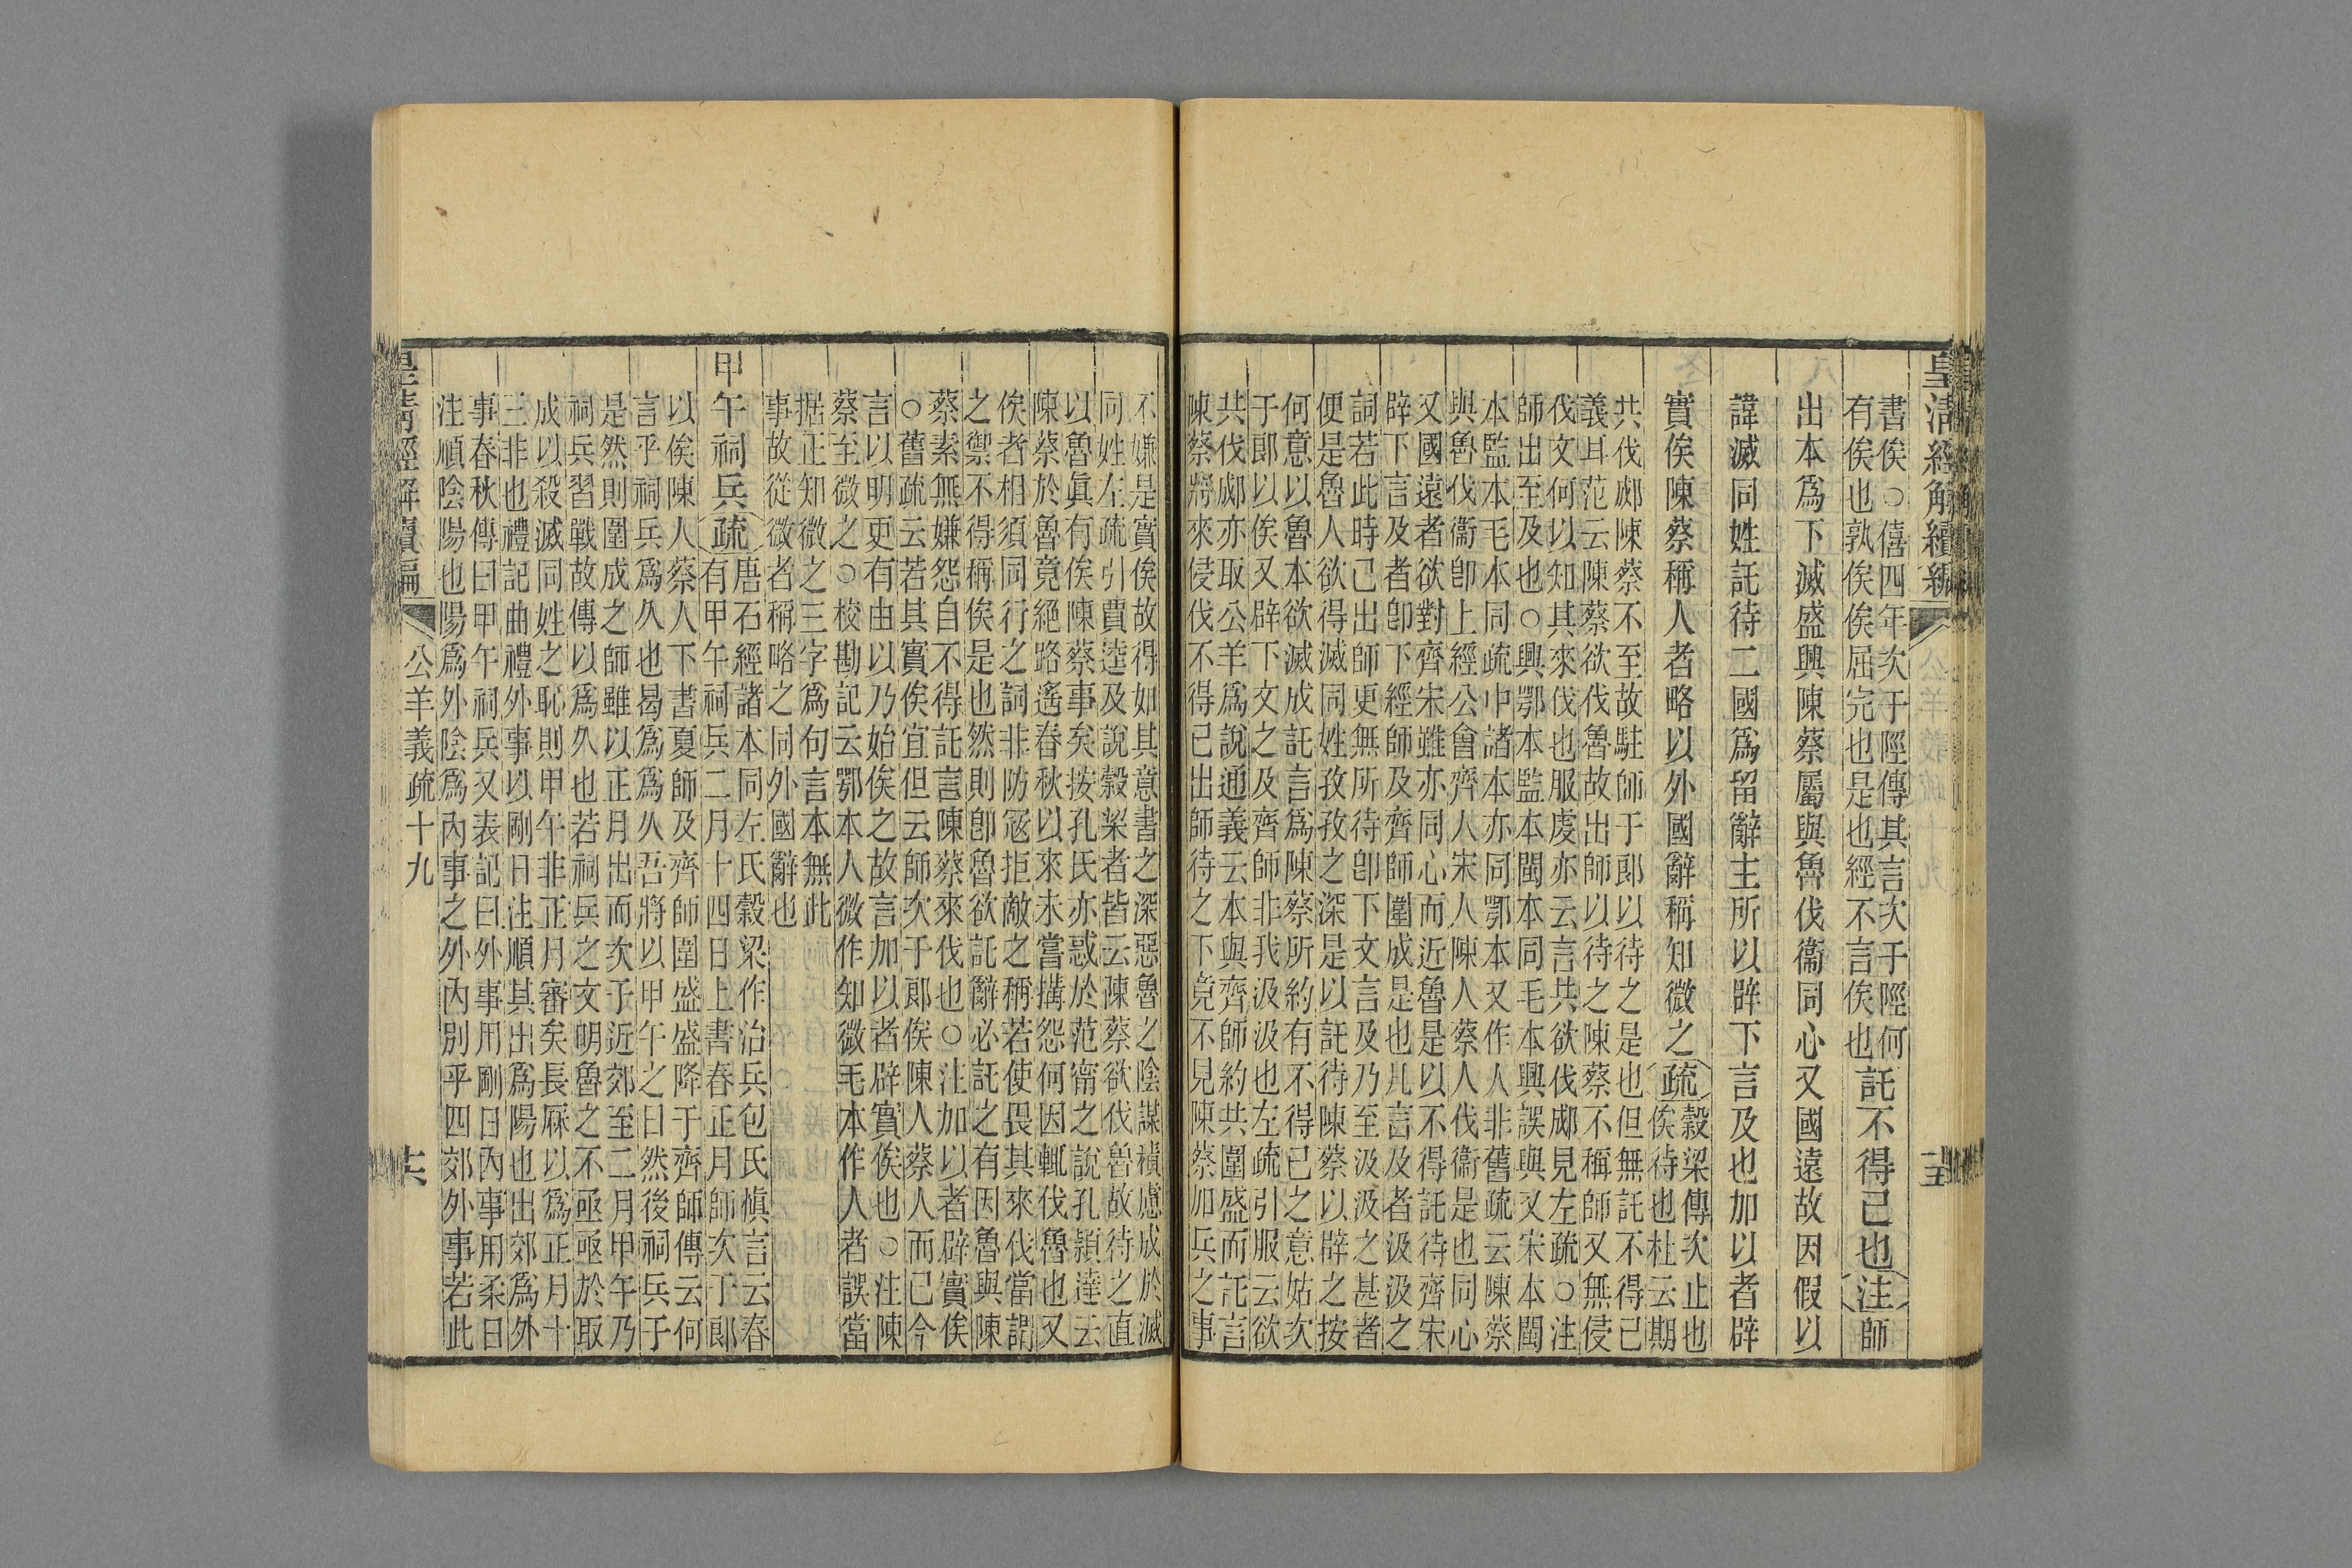 皇清經解續編
書俟○僖四年次于陘傳其言次于陘何
有俟也孰俟俟屈完也是也經不言俟也
託不得已也注師
出本爲下滅盛興陳蔡屬與魯伐衞同心又國遠故因假以
諱滅同姓託待二國爲留辭主所以辟下言及也加以者辟
實俟陳蔡稱人者略以外國辭稱知微之疏
穀梁傳次止也
俟待也杜云期
共伐郕陳蔡不至故駐師于郎以待之是也但無託不得已
義耳范云陳蔡欲伐魯故出師以待之陳蔡不稱師又無侵
伐文何以知其來伐也服虔亦云言共欲伐郕見左疏○注
師出至及也○興鄂本監本閩本同毛本興誤與又宋本閩
本監本毛本同疏中諸本亦同鄂本又作人非舊疏云陳蔡
與魯伐衞卽上經公會齊人宋人陳人蔡人伐衞是也同心
又國遠者欲對齊宋雖亦同心而近魯是以不得託待齊宋
辟下言及者卽下經師及齊師圍成是也凡言及者汲汲之
詞若此時已出師更無所待卽下文言及乃至汲汲之甚者
便是魯人欲得滅同姓孜孜之深是以託待陳蔡以辟之按
何意以魯本欲滅成託言爲陳蔡所約有不得已之意姑次
于郎以俟又辟下文之及齊師非我汲汲也左疏引服云欲
共伐郕亦取公羊爲說通義云本與齊師約共圍盛而託言
陳蔡將來侵伐不得已出師待之下竟不見陳蔡加兵之事
不嫌是實俟故得如其意書之深惡魯之陰謀積慮成於滅
同姓左疏引賈逵及說穀梁者皆云陳蔡欲伐魯故待之直
以魯眞有俟陳蔡事矣按孔氏亦惑於范甯之說孔穎達云
陳蔡於魯竟絕路遙春秋以來未嘗搆怨何因輒伐魯也又
俟者相須同行之詞非防寇拒敵之稱若使畏其來伐當謂
之禦不得稱俟是也然則卽魯欲託辭必託之有因魯與陳
蔡素無嫌怨自不得託言陳蔡來伐也○注加以者辟實俟
○舊疏云若其實俟宜但云師次于郎俟陳人蔡人而已今
言以明更有曲以乃始俟之故言加以者辟實俟也○注陳
蔡至微之○校勘記云鄂本人微作知微毛本作人者誤當
据正知微之三字爲句言本無此
事故從微者稱略之同外國辭也
甲午祠兵疏
唐石經諸本同左氏穀梁作治兵包氏愼言云春
有甲午祠兵二月十四日上書春正月師次于郎
以俟陳人蔡人下書夏師及齊師圍盛盛降于齊師傳云何
言乎祠兵爲久也曷爲爲久吾將以甲午之日然後祠兵于
是然則圍成之師雖以正月出而次于近郊至二月甲午乃
祠兵習戰故傳以爲久也若祠兵之文明魯之不亟亟於取
成以殺滅同姓之恥則甲午非正月審矣長厤以爲正月十
三非也禮記曲禮外事以剛日注順其出爲陽也出郊爲外
事春秋傳曰甲午祠兵又表記曰外事用剛日內事用柔日
注順陰陽也陽爲外陰爲內事之外內別乎四郊外事若此
皇清經解續編
公羊義疏十九